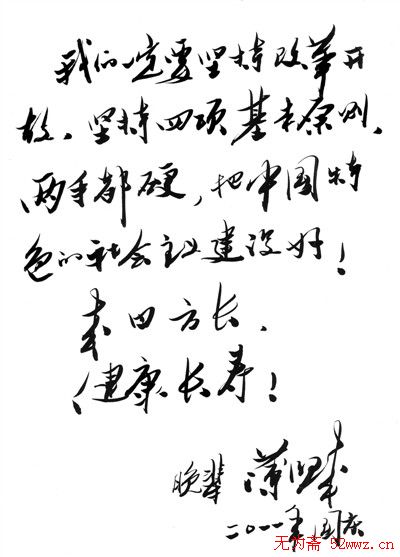 我们一定要坚持改革开
放、坚持四项基本原则、
两手都硬，把中国特
色的社会主义建设好！
来日方长，
健康长寿！
晚辈 薄熙来
二〇一一年国庆
无为斋 52wwz.cn